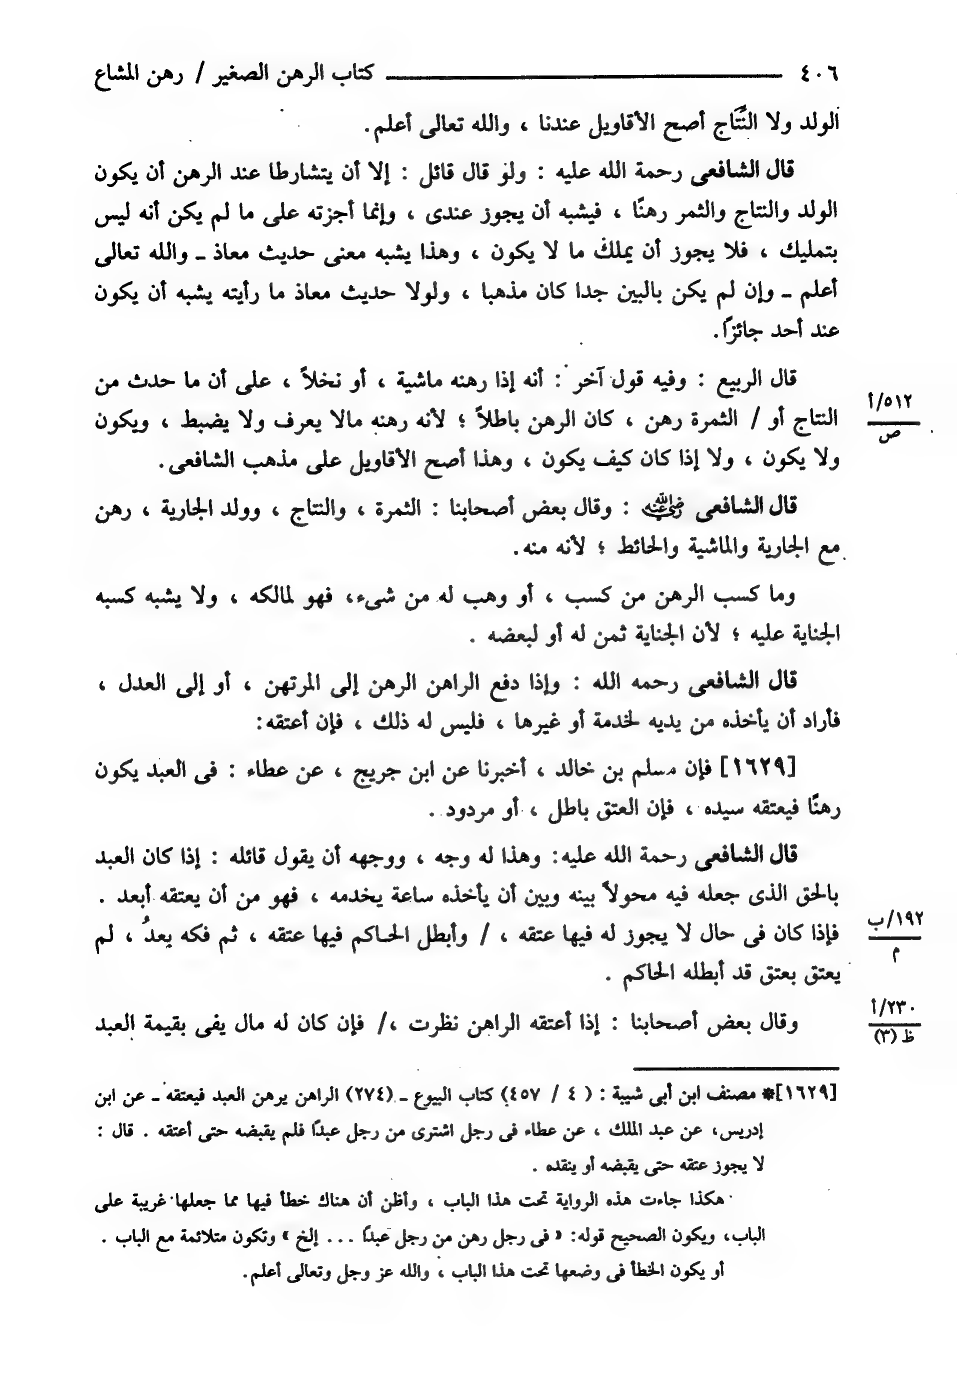 ٤٠٦ كتاب الرهن الصغير / رهن المشاع
الولد ولا النِّتَاج أصح الأقاويل عندنا ، والله تعالى أعلم.
قال الشافعى رحمة الله عليه : ولو قال قائل : إلا أن يتشارطا عند الرهن أن يكون
الولد والنتاج والثمر رهنًا ، فيشبه أن يجوز عندى ، وإنما أجزته على ما لم يكن أنه ليس
بتمليك ، فلا يجوز أن يملك ما لا يكون ، وهذا يشبه معنى حديث معاذ ـ والله تعالى
أعلم ـ وإن لم يكن بالبين جدا كان مذهبا ، ولولا حديث معاذ ما رأيته يشبه أن يكون
عند أحد جائزًا.
قال الربيع : وفيه قول آخر : أنه إذا رهنه ماشية ، أو نخلاً ، على أن ما حدث من
النتاج أو / الثمرة رهن ، كان الرهن باطلاً ؛ لأنه رهنه مالا يعرف ولا يضبط ، ويكون
٥١٢/أ
ص
ولا يكون ، ولا إذا كان كيف يكون ، وهذا أصح الأقاويل على مذهب الشافعى.
قال الشافعى رضي الله عنه : وقال بعض أصحابنا : الثمرة ، والنتاج ، وولد الجارية ، رهن
مع الجارية والماشية والحائط ؛ لأنه منه.
وما كسب الرهن من كسب ، أو وهب له من شىء، فهو لمالكه ، ولا يشبه كسبه
الجناية عليه ؛ لأن الجناية ثمن له أو لبعضه .
قال الشافعى رحمه الله : وإذا دفع الراهن الرهن إلى المرتهن ، أو إلى العدل ،
فأراد أن يأخذه من يديه لخدمة أو غيرها ، فليس له ذلك ، فإن أعتقه:
[١٦٢٩] فإن مسلم بن خالد ، أخبرنا عن ابن جريج ، عن عطاء : فى العبد يكون
رهنًا فيعتقه سيده ، فإن العتق باطل ، أو مردود .
قال الشافعى رحمة الله عليه: وهذا له وجه ، ووجهه أن يقول قائله : إذا كان العبد
بالحق الذى جعله فيه محولاً بينه وبين أن يأخذه ساعة يخدمه ، فهو من أن يعتقه أبعد .
فإذا كان فى حال لا يجوز له فيها عتقه ، / وأبطل الحاكم فيها عتقه ، ثم فكه بعدُ ، لم
١٩٢/ب
م
يعتق بعتق قد أبطله الحاكم .
وقال بعض أصحابنا : إذا أعتقه الراهن نظرت ،/ فإن كان له مال يفى بقيمة العبد
٢٣٠/أ
ظ (٣)
[١٦٢٩]* مصنف ابن أبى شيبة : ( ٤ / ٤٥٧) كتاب البيوع ـ (٢٧٤) الراهن يرهن العبد فيعتقه ـ عن ابن
إدريس، عن عبد الملك ، عن عطاء فى رجل اشترى من رجل عبدًا فلم يقبضه حتى أعتقه . قال :
لا يجوز عتقه حتى يقبضه أو ينقده .
هكذا جاءت هذه الرواية تحت هذا الباب ، وأظن أن هناك خطأ فيها مما جعلها غريبة على
الباب، ويكون الصحيح قوله: « فى رجل رهن من رجل عبدًا ... إلخ » وتكون متلائمة مع الباب .
أو يكون الخطأ فى وضعها تحت هذا الباب ، والله عز وجل وتعالى أعلم.